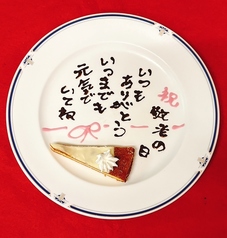 祝 敬老の日
いつも
ありがとう
いつまでも
元気で
いてね